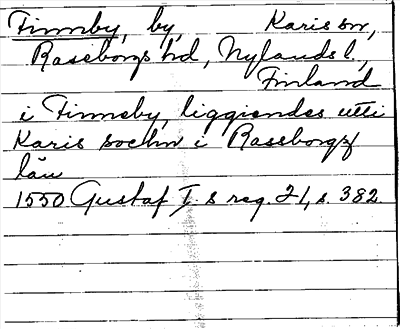 Finnby, by, Karis sn,
Raseborgs hd, Nylands l.,
Finland
i Finneby, liggiendes utti
Karis sochn i Rassborgz
län
1550 Gustaf I:s reg. 21, s. 382.